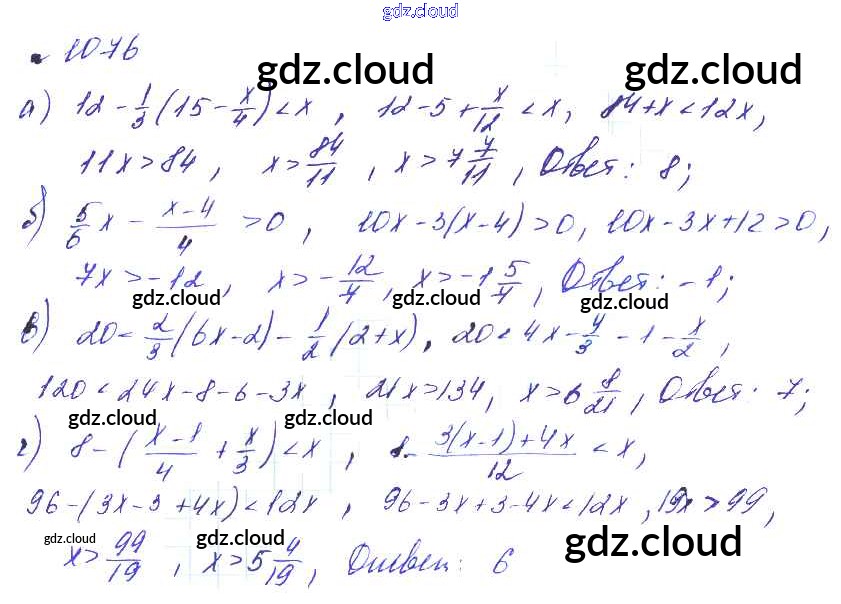 gdz.cloud
1076
gdz.cloud gdz.cloud
а) 12 - 1/3 (15 - x/4) < x , 12 - 5 + x/12 < x, 84 + x < 12x,
11x > 84 , x > 84/11 , x > 7 7/11 , Ответ: 8;
б) 5/6 x - (x-4)/4 > 0 , 10x - 3(x-4) > 0, 10x - 3x + 12 > 0,
7x > -12 , x > - 12/7 , x > -1 5/7 , Ответ: -1;
gdz.cloud gdz.cloud gdz.cloud
в) 20 < 2/3 (6x - 2) - 1/2 (2 + x) , 20 < 4x - 4/3 - 1 - x/2 ,
120 < 24x - 8 - 6 - 3x , 21x > 134, x > 6 8/21 , Ответ: 7;
gdz.cloud gdz.cloud
г) 8 - ( (x-1)/4 + x/3 ) < x , 8 - (3(x-1)+4x)/12 < x,
96 - (3x - 3 + 4x) < 12x , 96 - 3x + 3 - 4x < 12x , 19x > 99,
gdz.cloud gdz.cloud gdz.cloud
x > 99/19 , x > 5 4/19 , Ответ: 6